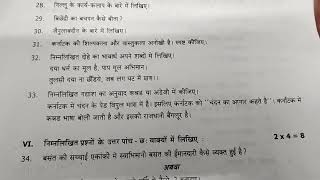 28. गिल्लू के कार्य-कलाप के बारे में लिखिए।
29. बिछेंद्री का बचपन कैसे बीता?
30. जैनुलाबदीन के बारे में लिखिए।
31. कर्नाटक की शिल्पकला और वास्तुकला अनोखी है। स्पष्ट कीजिए।
32. निम्नलिखित दोहे का भावार्थ अपने शब्दों में लिखिए।
दया धर्म का मूल है, पाप मूल अभिमान।
तुलसी दया ना छाँडिये, जब लग घट में प्राण।।
33. निम्नलिखित गद्यांश का अनुवाद कन्नड या अंग्रेजी में कीजिए।
कर्नाटक में चंदन के पेड विपुल मात्रा में हैं। इसलिए कर्नाटक को "चंदन का आगार कहते है"। कर्नाटक में
कन्नड भाषा बोली जाती है और इसकी राजधानी बेंगलूर है।
VI. निम्नलिखित प्रश्नों के उत्तर पाँच - छः वाक्यों में लिखिए : 2 x 4 = 8
34. बसंत को सच्चाई एकांकी में स्वाभिमानी बसंत की ईमानदारी कैसे व्यक्त हुई है?
अथवा